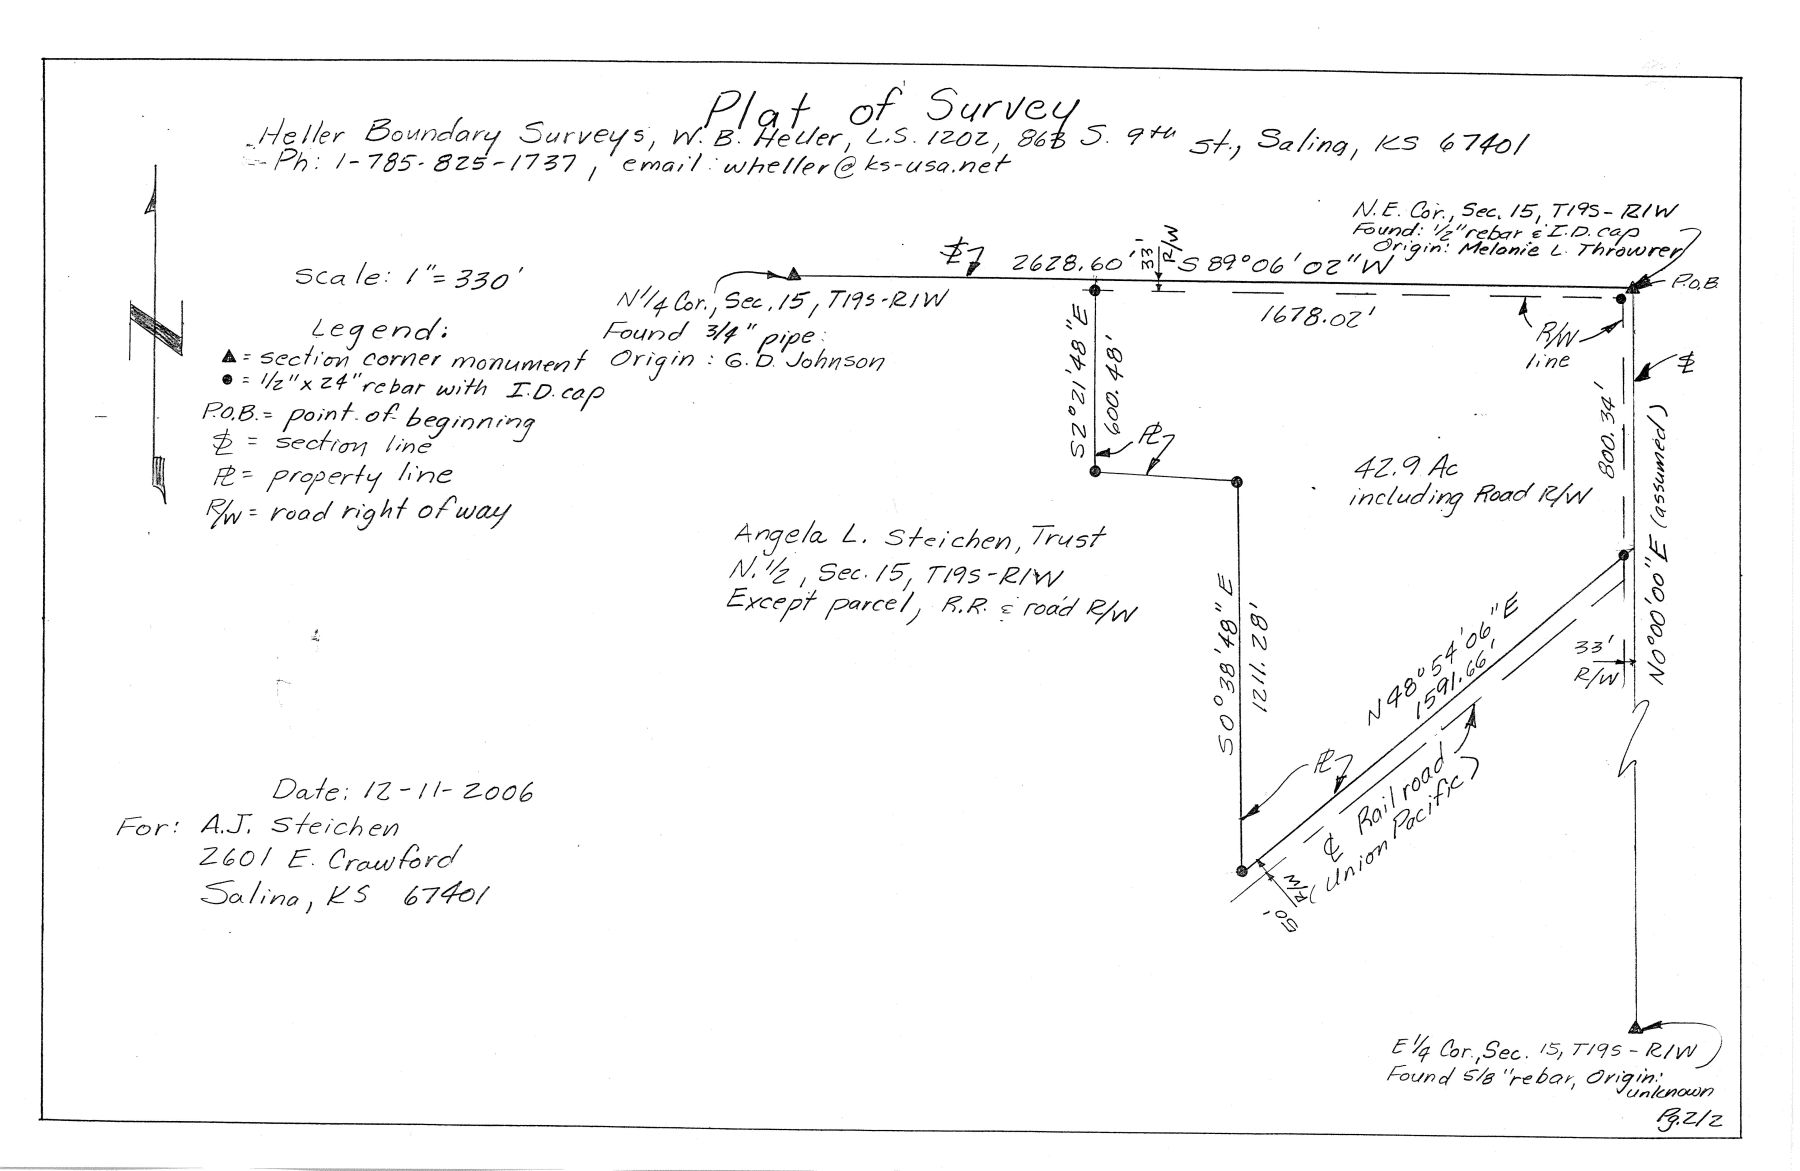 Plat of Survey
Heller Boundary Surveys, W. B. Heller, L.S. 1202, 863 S. 9th St., Salina, KS 67401
Ph: 1-785-825-1737, email: wheller@ks-usa.net
N.E. Cor., Sec. 15, T19S-R1W
Found: 1/2" rebar & I.D. cap
Origin: Melonie L. Throwrer
P.O.B.
℄
2628.60'
33'
R/W
S 89°06'02" W
1678.02'
R/W
line
Scale: 1" = 330'
N 1/4 Cor., Sec. 15, T19S-R1W
Found 3/4" pipe:
Origin: G.D. Johnson
Legend:
▲ = section corner monument
● = 1/2" x 24" rebar with I.D. cap
P.O.B. = point of beginning
℄ = section line
PL = property line
R/W = road right of way
S2°21'48"E
600.48'
PL
42.9 Ac
including Road R/W
800.34'
℄
N0°00'00"E (assumed)
Angela L. Steichen, Trust
N. 1/2, Sec. 15, T19S-R1W
Except parcel, R.R. & road R/W
S0°38'48"E
1211.28'
N48°54'06"E
1591.66'
33'
R/W
PL
℄ Railroad
(Union Pacific)
50'
R/W
Date: 12-11-2006
For: A.J. Steichen
2601 E. Crawford
Salina, KS 67401
E 1/4 Cor., Sec. 15, T19S-R1W
Found 5/8" rebar, Origin:
unknown
Pg. 2/2